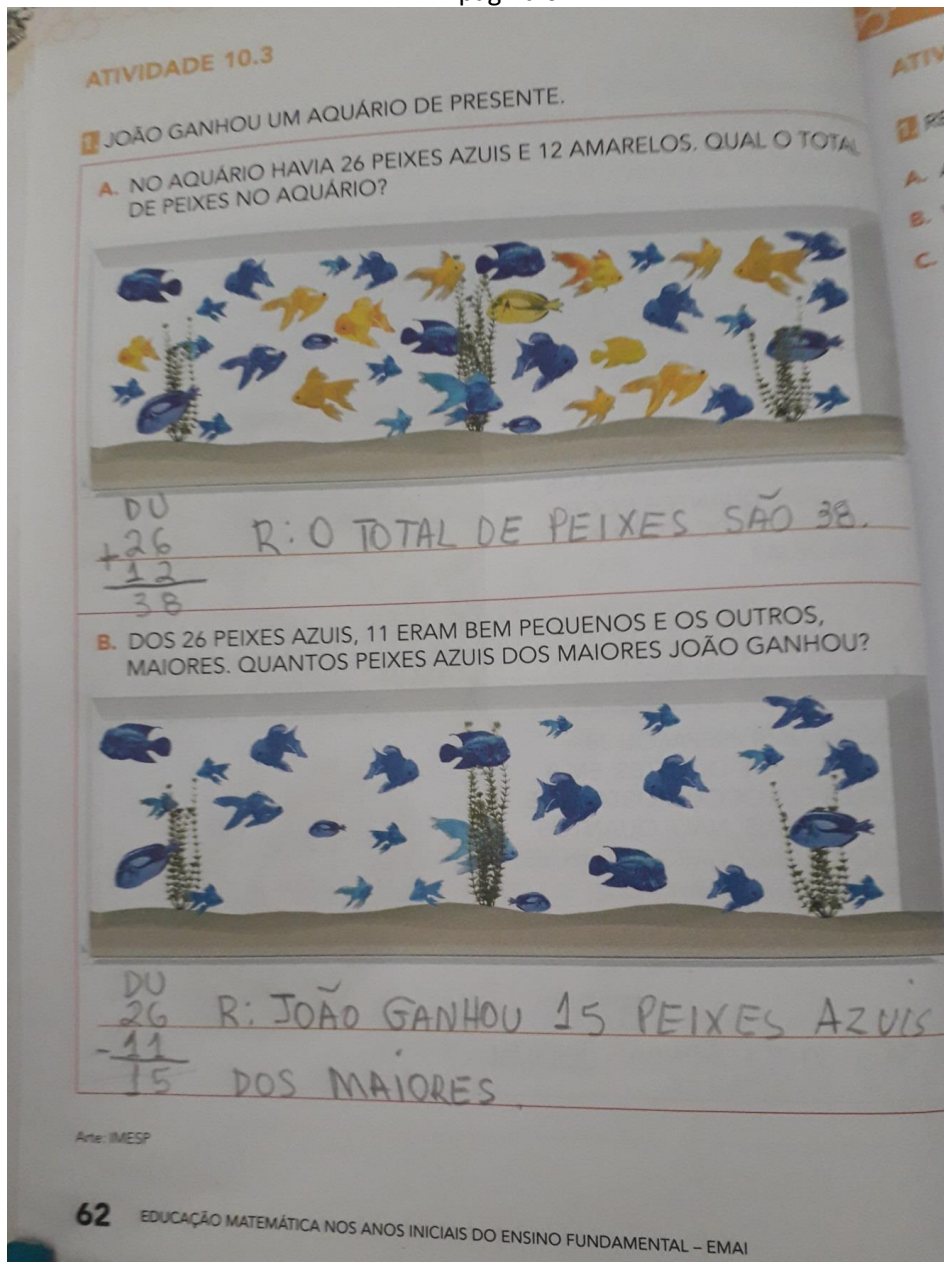 ATIVIDADE 10.3
1. JOÃO GANHOU UM AQUÁRIO DE PRESENTE.
A. NO AQUÁRIO HAVIA 26 PEIXES AZUIS E 12 AMARELOS. QUAL O TOTAL
DE PEIXES NO AQUÁRIO?
DU
26
+12
38
R: O TOTAL DE PEIXES SÃO 38.
B. DOS 26 PEIXES AZUIS, 11 ERAM BEM PEQUENOS E OS OUTROS,
MAIORES. QUANTOS PEIXES AZUIS DOS MAIORES JOÃO GANHOU?
DU
26
-11
15
R: JOÃO GANHOU 15 PEIXES AZUIS
DOS MAIORES.
Arte: IMESP
62 EDUCAÇÃO MATEMÁTICA NOS ANOS INICIAIS DO ENSINO FUNDAMENTAL – EMAI
A.
B.
C.